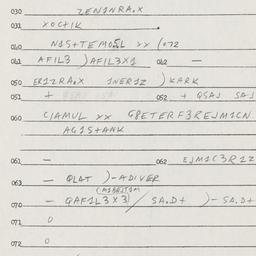 030 ZENINRA.X
031 XOCTIK
040 NIS+TEMOSL XX (072
041 AFIL3 )AFIL3X1 042 —
050 ERIZRA.X INERIZ )KARK
051 + 052 + QSAJ SAJ
060 CIAMUL XX GBETERF3REJMICN
AGIS+ANK
061 — 062 EJMIC3RIZ
063 — QLAT )-ADIVER
070 — QAFIL3X3) / SA.D+ )-SA.D+
071 0
072 0